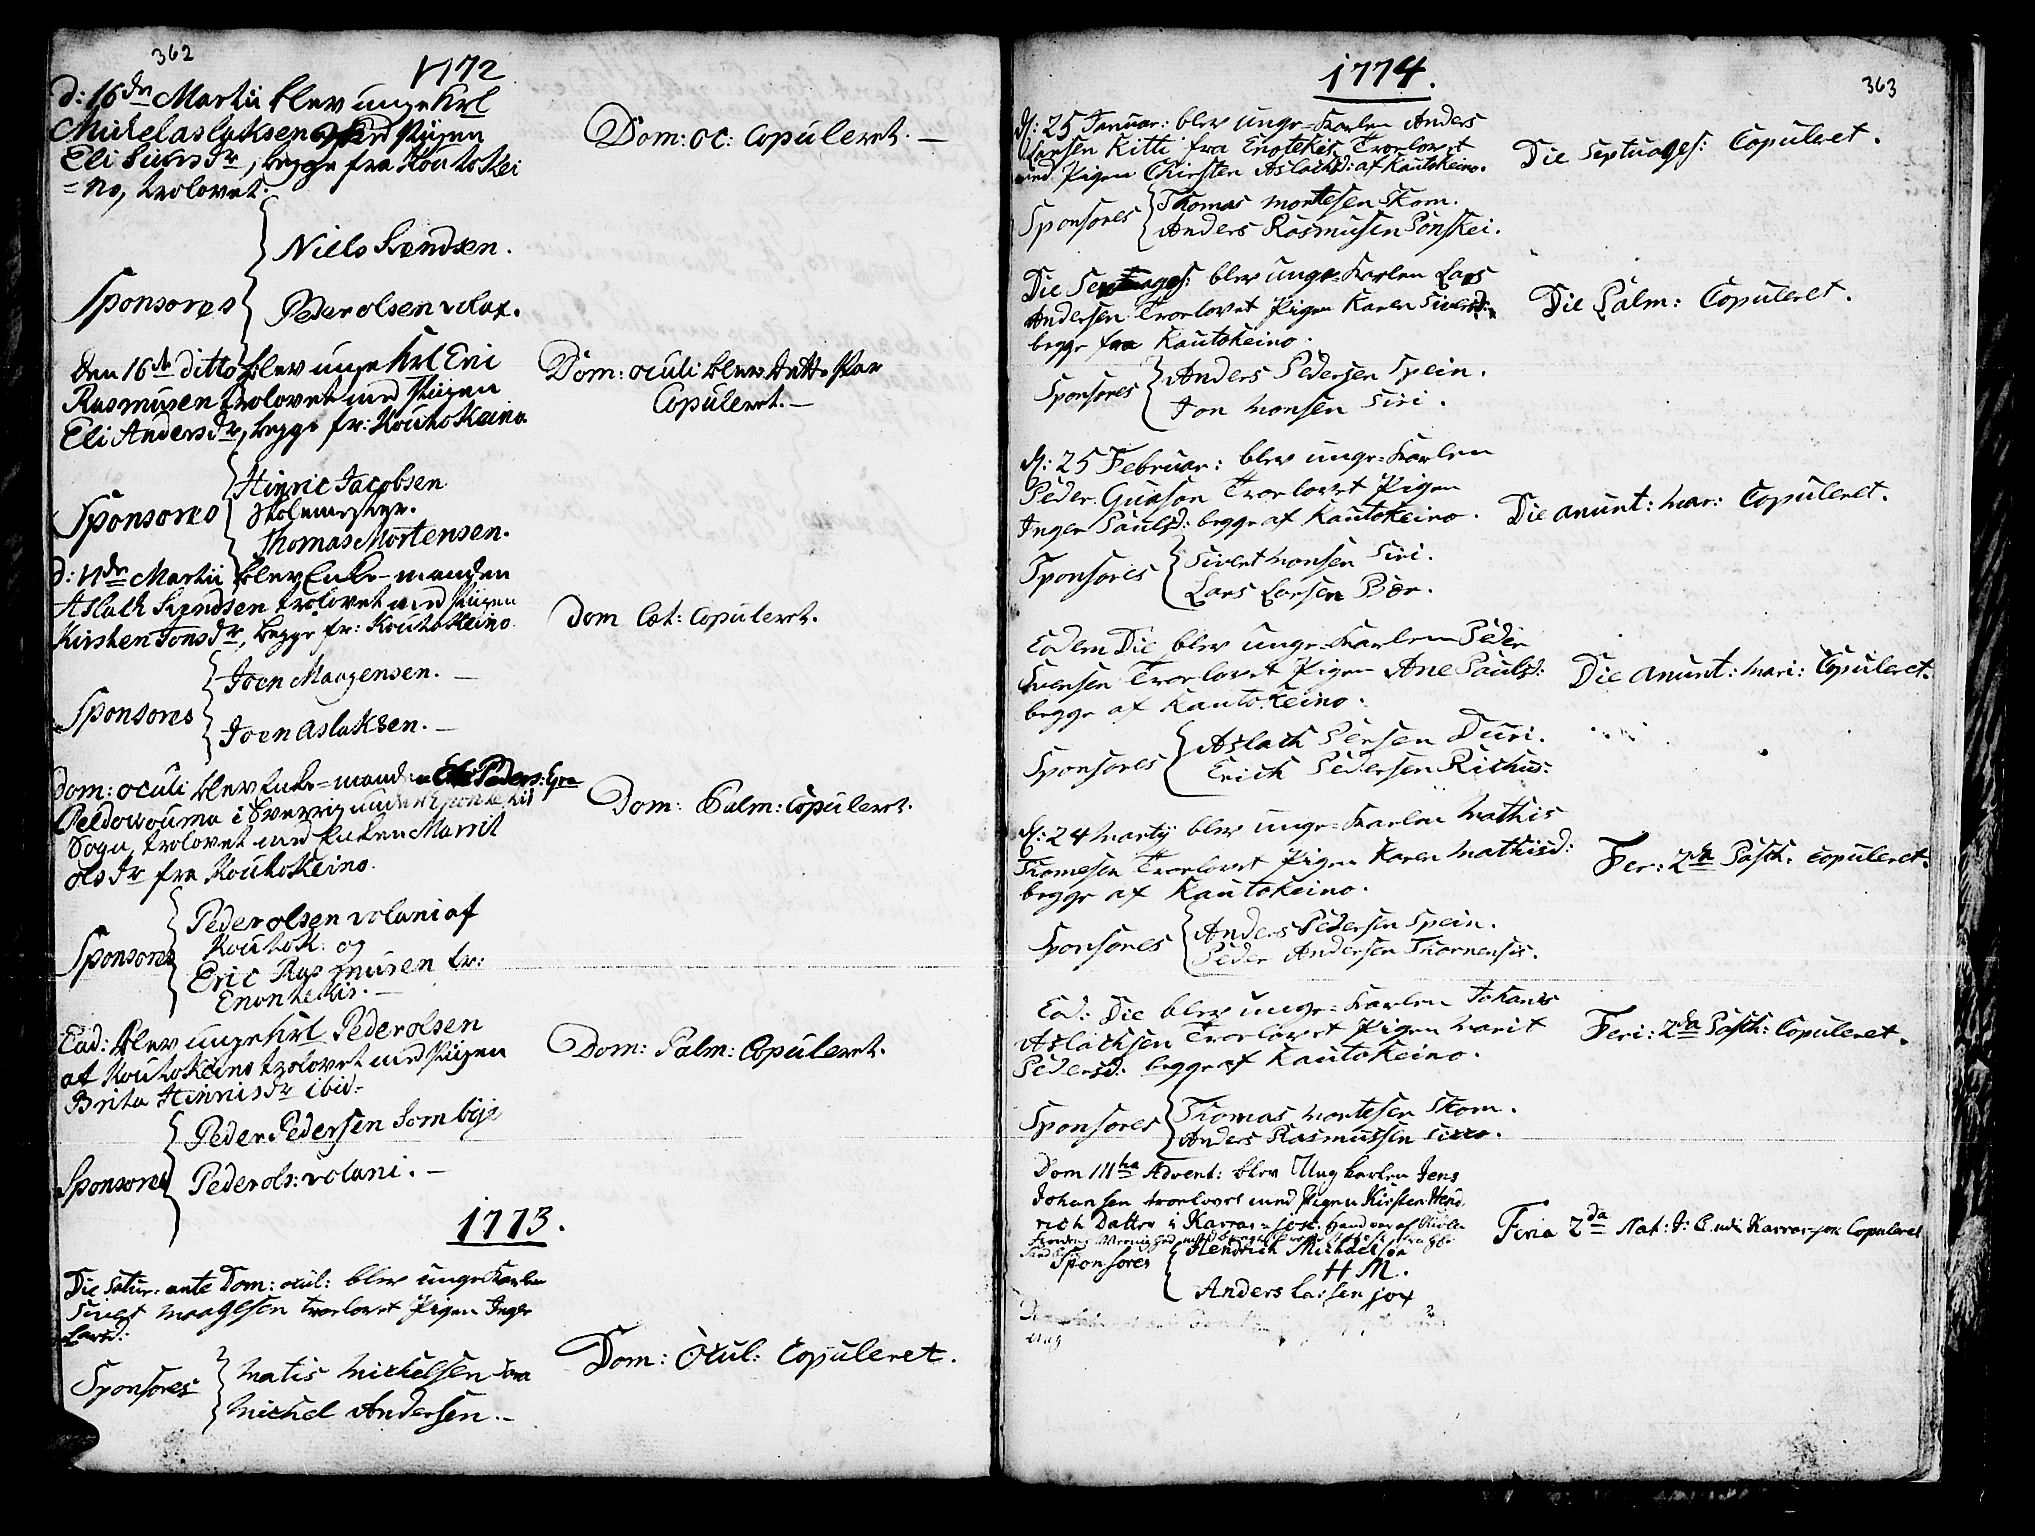 362
1772
d: 16de Martii blev unge Krl
Michel Aslaksen med Piigen
Eli Suersdr, begge fra Koutokei
=no, trolovet.
Dom: oc: Copuleret. —
Sponsores
Niels Svendsen.
Peder Olsen
den 16de ditto blev unge Krl Eric
Rasmusen trolovet med Piigen
Eli Andersdr, begge fr: Koutokeino
Dom: oculi blev dette Par
Copuleret. —
Sponsores
Hinric Jacobsen
Skolemester.
Thomas Mortensen.
d: Martii blev Enke-manden
Aslach Svendsen trolovet med Piigen
Kirsten Jonsdr, begge fr: Koutokeino.
Dom Læt: Copuleret.
Sponsores
Joen Maagensen. —
Joen Aslaksen. —
Dom: oculi blev Enke=manden Peders:
Peldowouma i Sverrig under Enontekis
Sogn, trolovet med Enken Marrit
Olsdr fra Koutokeino.
Dom: Palm: Copuleret.
Sponsores
Peder Olsen Volani af
Koutok: og
Eric Rasmusen fr:
Enontekis. —
Ead: blev unge Krl Peder Olsen
af Koutokeino trolovet med Piigen
Brita Hinrisdr ibid:
Dom: Palm: Copuleret.
Sponsores
Peder Pedersen Sombye
Peder Ols: Volani. —
1773.
Die Satur: ante Dom: ocul: blev unge Karlen
Siuert Maagesen Troelovet Pigen Inger
Larsd:
Dom: Ocul: Copuleret.
Sponsores
Matis Mickelsen
Michel Andersen. —
363
1774.
d: 25 Januar: blev unge=Karlen Anders
Larsen Kitti fra Enotekis Troelovet
med Pigen Chirsten Aslachsd: af Kautokeino.
Die Septuages: Copuleret.
Sponsores
Thomas Mortesen Skom.
Anders Rasmusen Ponskei.
Die Septuages: blev unge=Karlen Lars
Andersen Troelovet Pigen Karen Siversd:
begge fra Kautokeino.
Die Palm: Copuleret.
Sponsores
Anders Pedersen Spein.
Jon Monsen Siri.
d: 25 Februar: blev unge=Karlen
Peder Troelovet Pigen
Inger Paulsd: begge af Kautokeino.
Die anunt: Mar: Copuleret.
Sponsores
Sivert Monsen Siri.
Lars Larsen Bær.
Eodem Die blev unge Karlen Peder
Svensen Troelovet Pigen Ane Paulsd:
begge af Kautokeino.
Die anunt: Mari: Copuleret.
Sponsores
Aslach Persen Duri.
Erich Pedersen
d: 24 Martij blev unge=Karlen Mathis
Thomesen Troelovet Pigen Karen Mathisd:
begge af Kautokeino.
Fer: 2da Pasch: copuleret.
Sponsores
Anders Pedersen Spein.
Peder Andersen Thornensis.
Eod: Die blev unge=Karlen Johanes
Aslachsen Troelovet Pigen Marit
Pedersd: begge af Kautokeino.
Feri: 2da Pasch: Copuleret.
Sponsores
Thomas Mortesen Skom.
Anders Rasmussen
Dom IIItia Advent: blev Ung karlen Jens
Johansen troelovet med Pigen Kirsten Hend
rich Datter i Karras=jok.
Feria 2da Nat: J: C. udi Karras-jok Copuleret
Sponsores
Hendrich Michaelsen
H M.
Anders Larsen jox
Ung